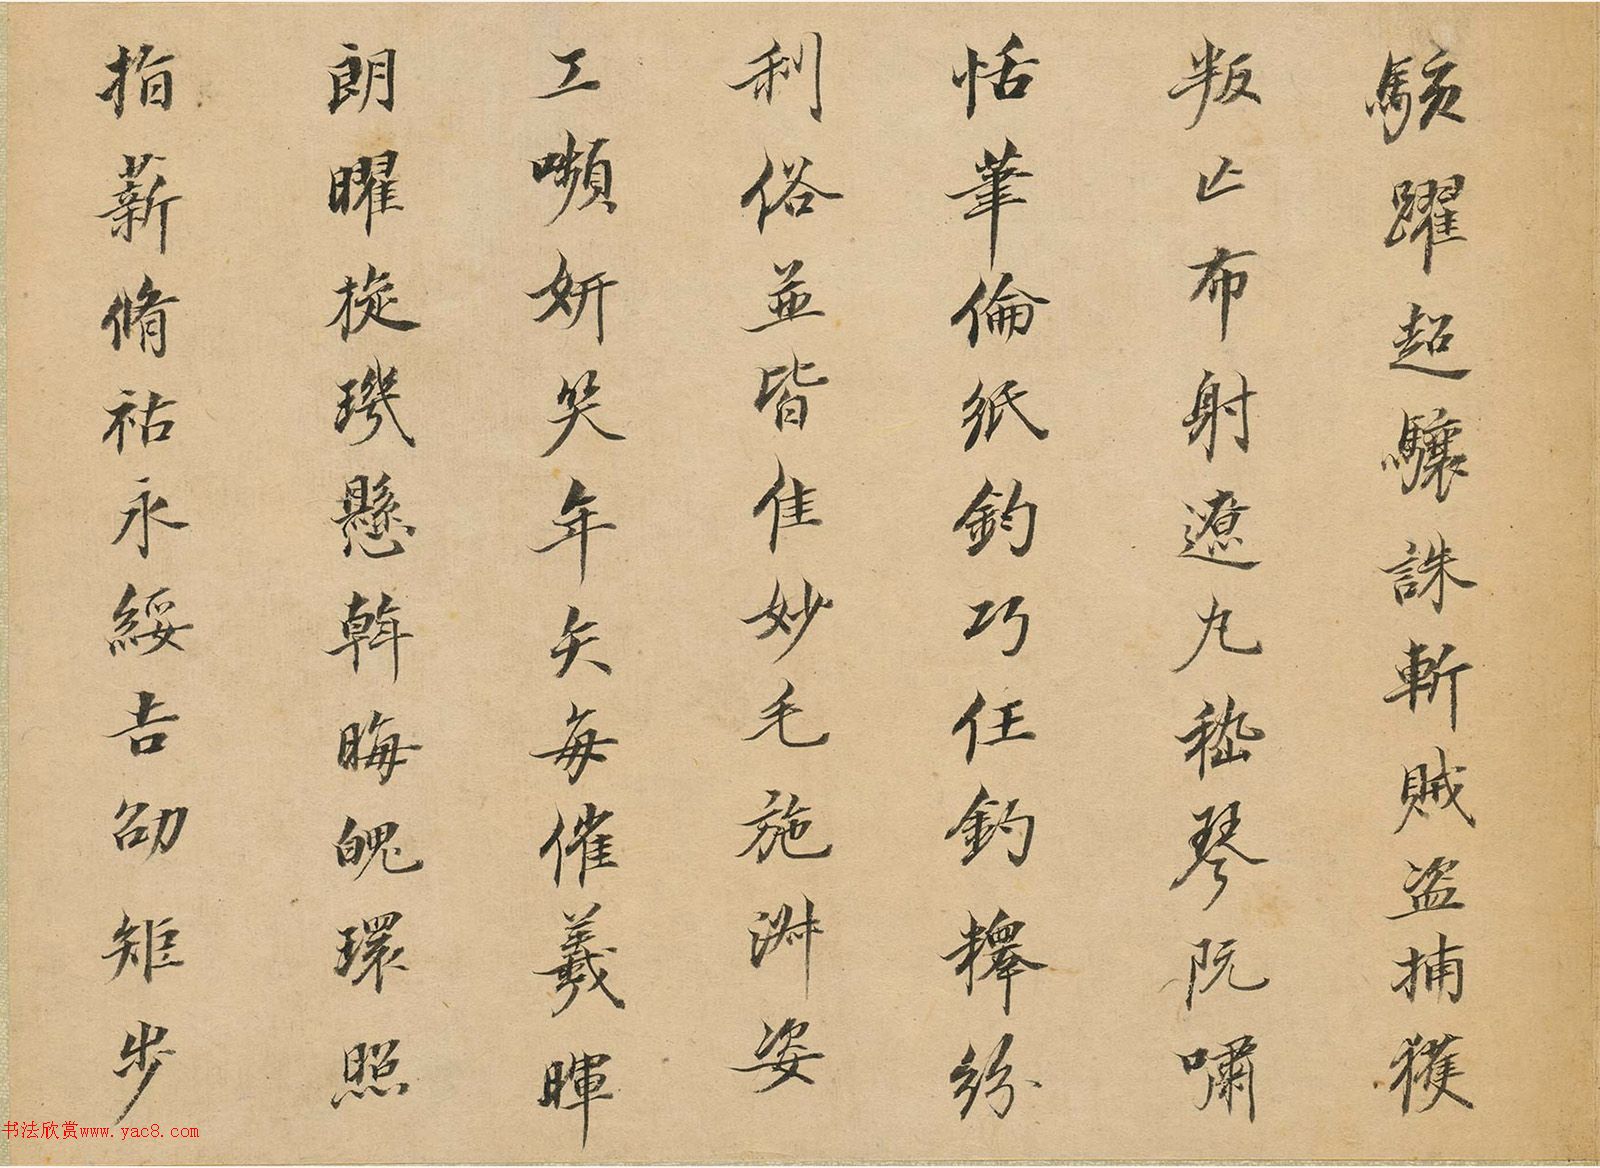 駭躍超驤誅斬賊盜捕獲
叛亡布射遼丸嵇琴阮嘯
恬筆倫紙鈞巧任釣釋紛
利俗並皆佳妙毛施淑姿
工嚬妍笑年矢每催羲暉
朗曜旋璣懸斡晦魄環照
指薪脩祜永綏吉劭矩步
书法欣赏www.yac8.com